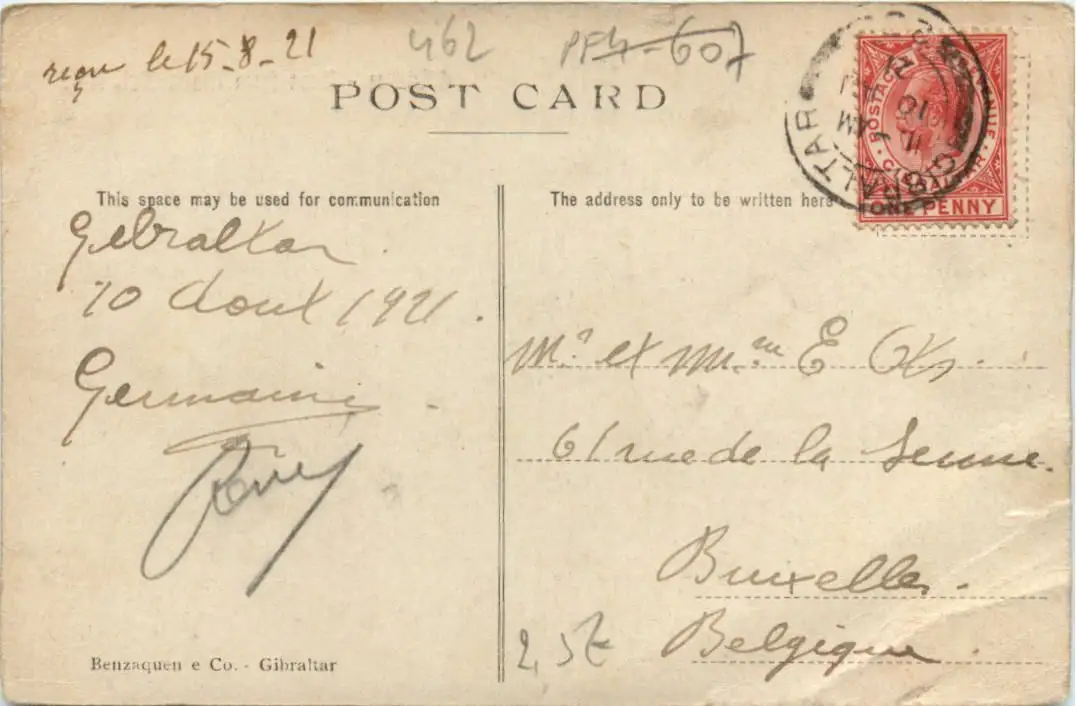 reçu le 15-8-21
462
PF4-607
POST CARD
POSTAGE & REVENUE
GIBRALTAR
ONE PENNY
GIBRALTAR
This space may be used for communication
The address only to be written here
Gibraltar
10 Aout 1921.
Germaine
Mr et Mme E
61 rue de la Senne.
Bruxelles.
Belgique.
2,5
Benzaquen e Co. - Gibraltar